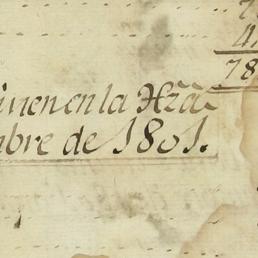 78
vienen en la Hzã
mbre de 1801.